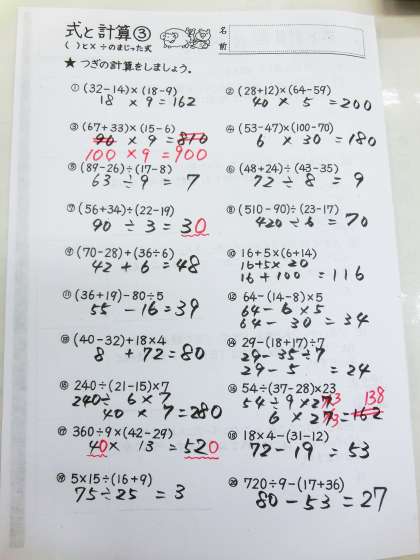 式と計算③
( )と× ÷のまじった式
名
前
★ つぎの計算をしましょう。
① (32−14)×(18−9)
18 × 9 = 162
② (28+12)×(64−59)
40 × 5 = 200
③ (67+33)×(15−6)
90 × 9 = 810
100 × 9 = 900
④ (53−47)×(100−70)
6 × 30 = 180
⑤ (89−26)÷(17−8)
63 ÷ 9 = 7
⑥ (48+24)÷(43−35)
72 ÷ 8 = 9
⑦ (56+34)÷(22−19)
90 ÷ 3 = 30
⑧ (510−90)÷(23−17)
420 ÷ 6 = 70
⑨ (70−28)+(36÷6)
42 + 6 = 48
⑩ 16+5×(6+14)
16+5× 20
16 + 100 = 116
⑪ (36+19)−80÷5
55 − 16 = 39
⑫ 64−(14−8)×5
64− 6 ×5
64 − 30 = 34
⑬ (40−32)+18×4
8 + 72 = 80
⑭ 29−(18+17)÷7
29− 35÷7
29 − 5 = 24
⑮ 240÷(21−15)×7
240÷ 6 ×7
40 × 7 = 280
⑯ 54÷(37−28)×23
54 ÷ 9 × 23
138
6 × 23 = 162
⑰ 360÷9×(42−29)
40 × 13 = 520
⑱ 18×4−(31−12)
72 − 19 = 53
⑲ 5×15÷(16+9)
75 ÷ 25 = 3
⑳ 720÷9−(17+36)
80 − 53 = 27